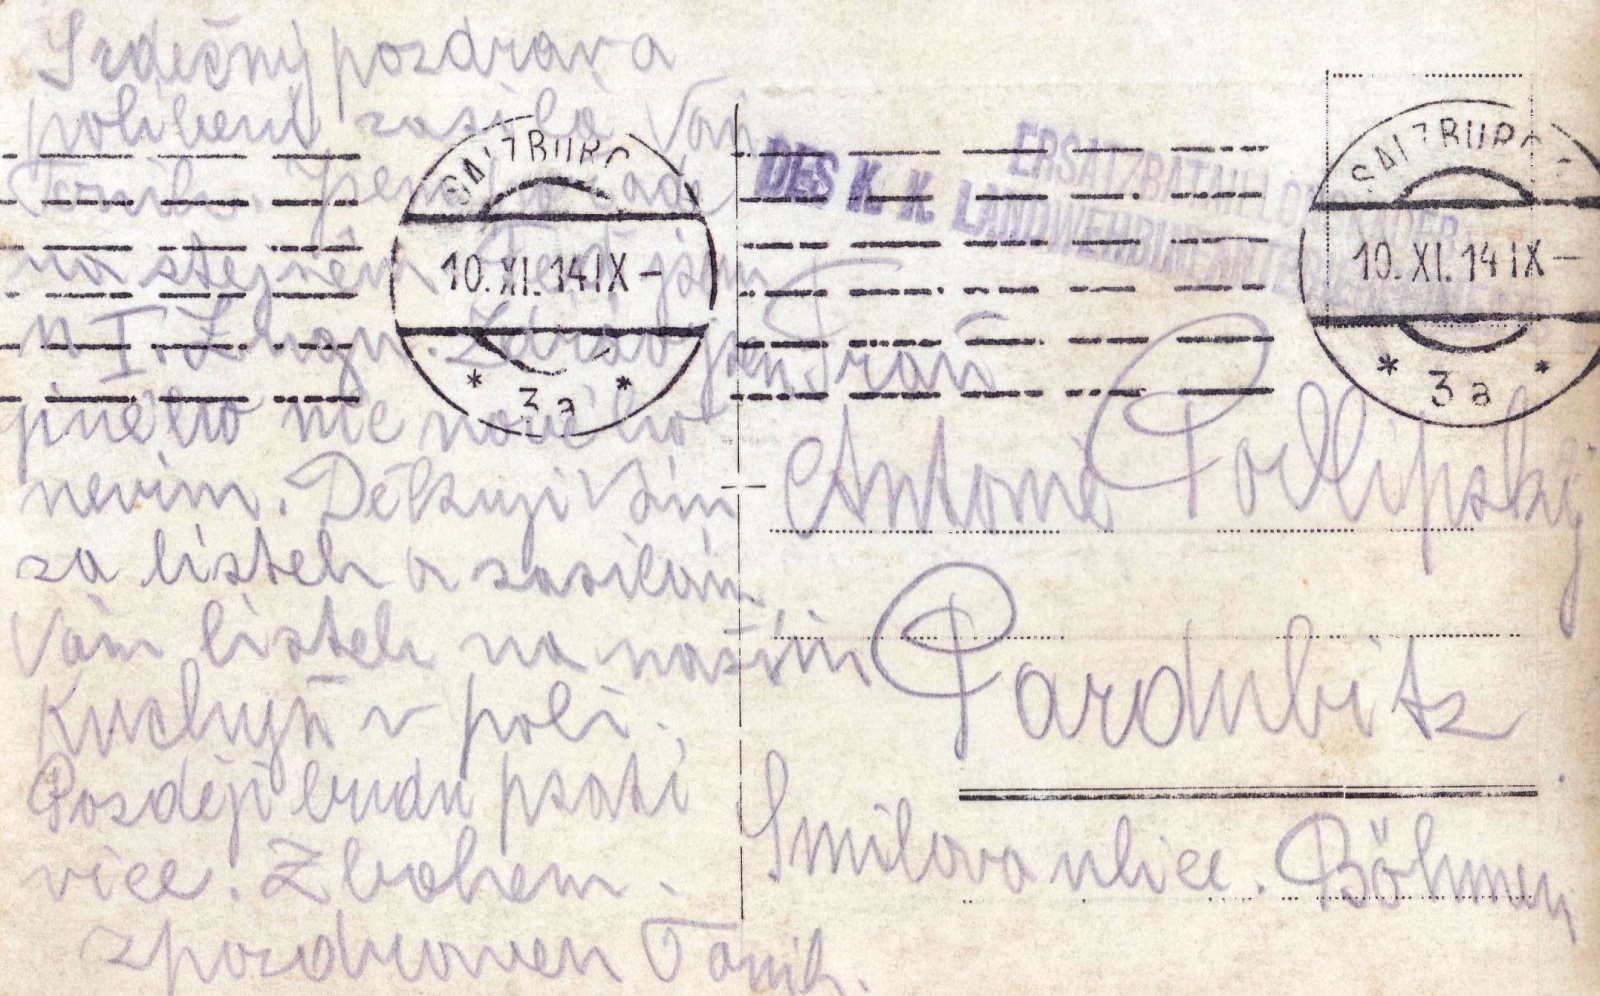 Srdečný pozdrav a
políbení zasílá Vám
Toník. Jsem pořád
na stejném. Teď jsem
u I. Zugu. Zdráv jsem
jiného nic nového
nevím. Děkuji Vám
za lístek a zasílám
Vám lístek na naším
Kuchyň v poli.
Později budu psati
více. Zbohem.
zpozdraven Toník.
SALZBURG
10. XI. 14 IX -
* 3a *
ERSATZBATAILLONSKADER
DES K. K. LANDWEHRINFANTERIE
SALZBURG
10. XI. 14 IX -
* 3a *
Antoní Podlipský
Pardubitz
Smilova ulice. Böhmen